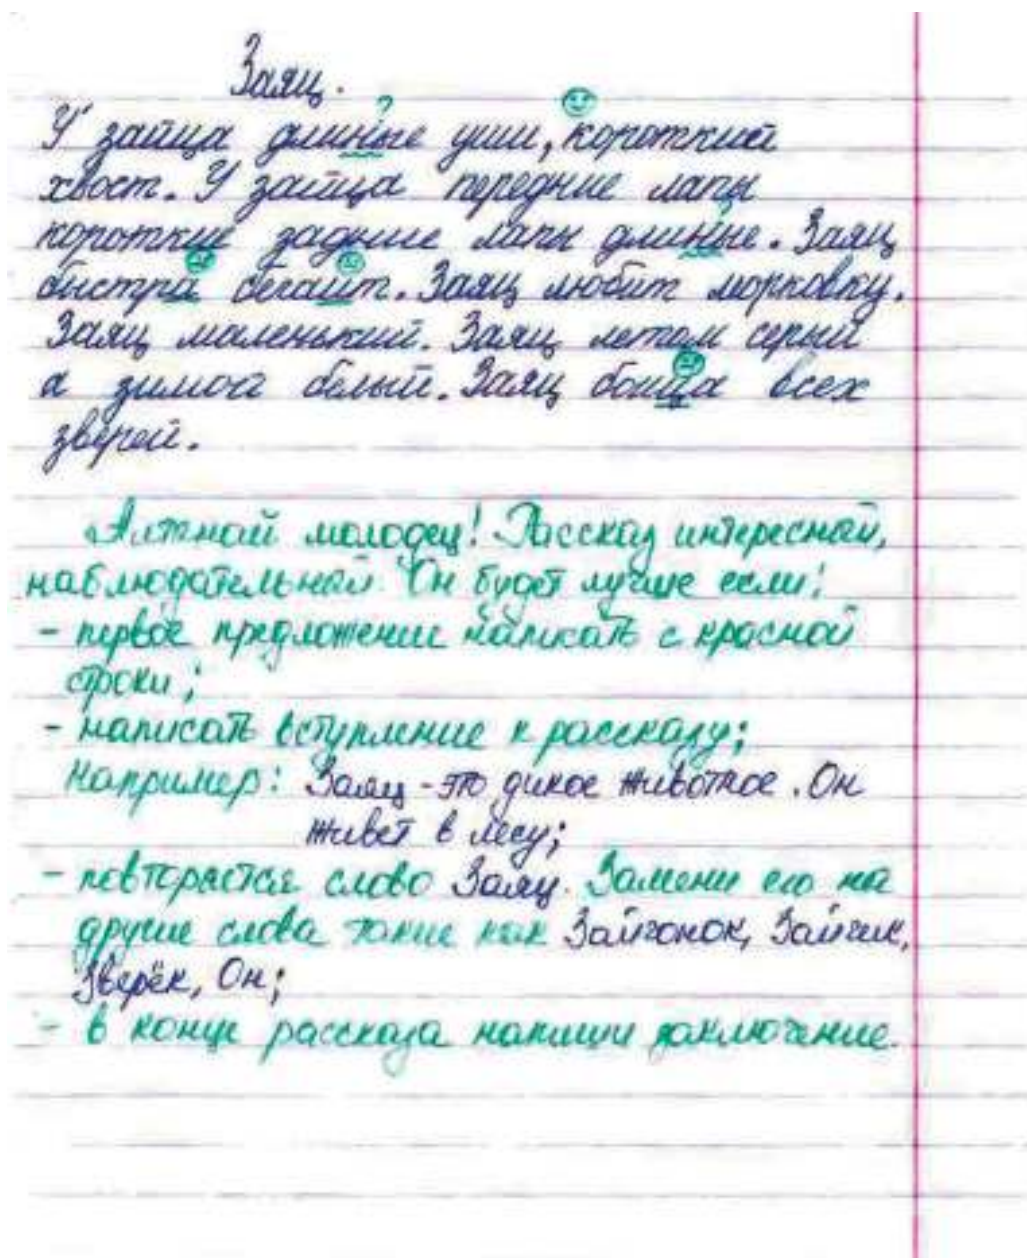 Заяц.
У зайца длиные уши, короткий
хвост. У зайца передние лапы
короткие задние лапы длиные. Заяц
быстра бегаит. Заяц любит морковку.
Заяц маленький. Заяц летом серый
а зимой белый. Заяц боица всех
зверей.
Алтнай молодец! Рассказ интересный,
наблюдательный. Он будет лучше если:
- первое предложение написать с красной
строки;
- написать вступление к рассказу;
например: Заяц - это дикое животное. Он
живет в лесу;
- повторяется слово Заяц. Замени его на
другие слова такие как Зайчонок, Зайчик,
Зверёк, Он;
- в конце рассказа напиши заключение.